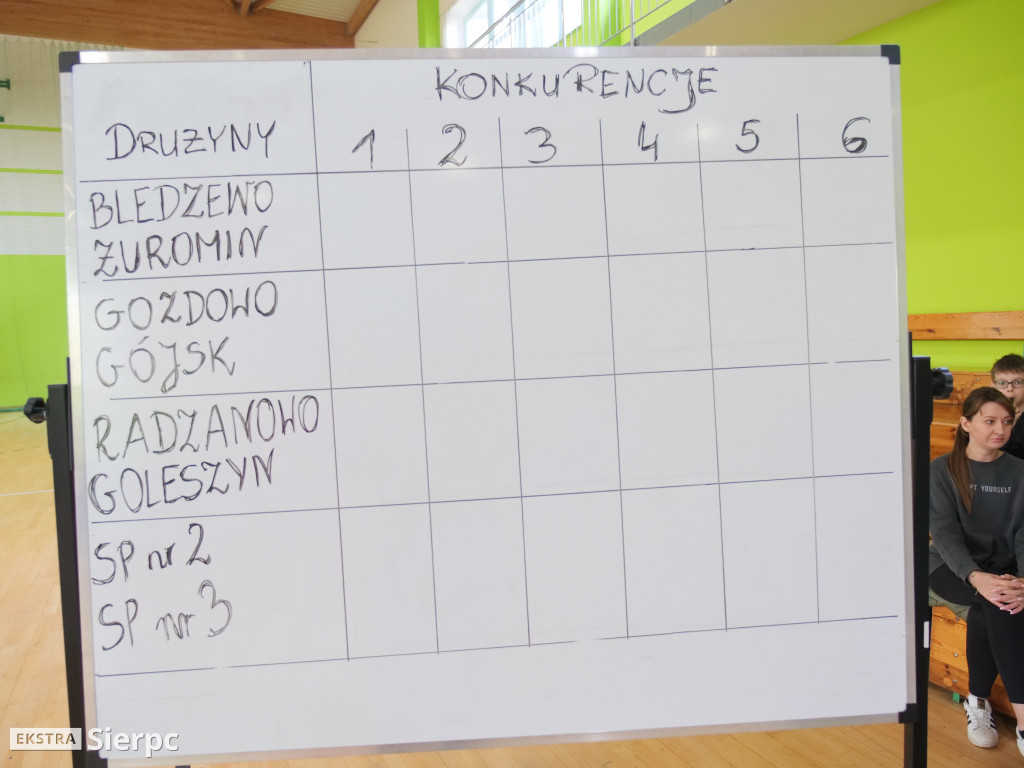 KONKURENCJE
DRUŻYNY 1 2 3 4 5 6
BLEDZEWO
ŻUROMIN
GOZDOWO
GÓJSK
RADZANOWO
GOLESZYN
SP nr 2
SP nr 3
PT YOURSELF
EKSTRA Sierpc